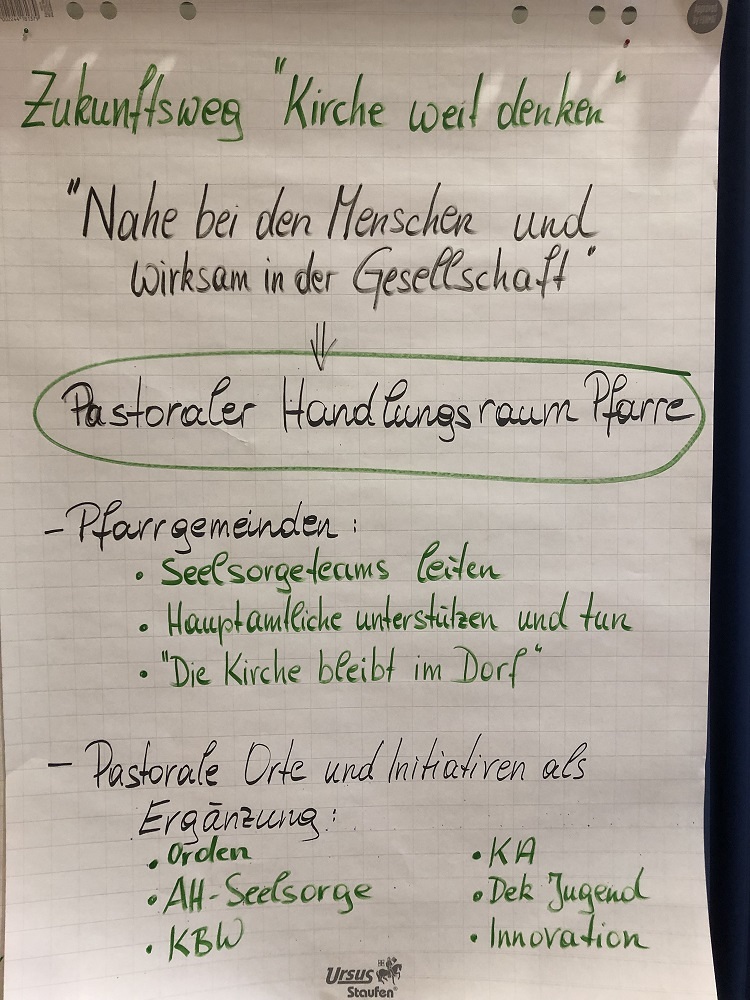 Zukunftsweg "Kirche weit denken"
"Nahe bei den Menschen und
wirksam in der Gesellschaft"
⇓
Pastoraler Handlungsraum Pfarre
- Pfarrgemeinden:
• Seelsorgeteams leiten
• Hauptamtliche unterstützen und tun
• "Die Kirche bleibt im Dorf"
- Pastorale Orte und Initiativen als
Ergänzung:
• Orden
• AH-Seelsorge
• KBW
• KA
• Dek Jugend
• Innovation
Ursus
Staufen